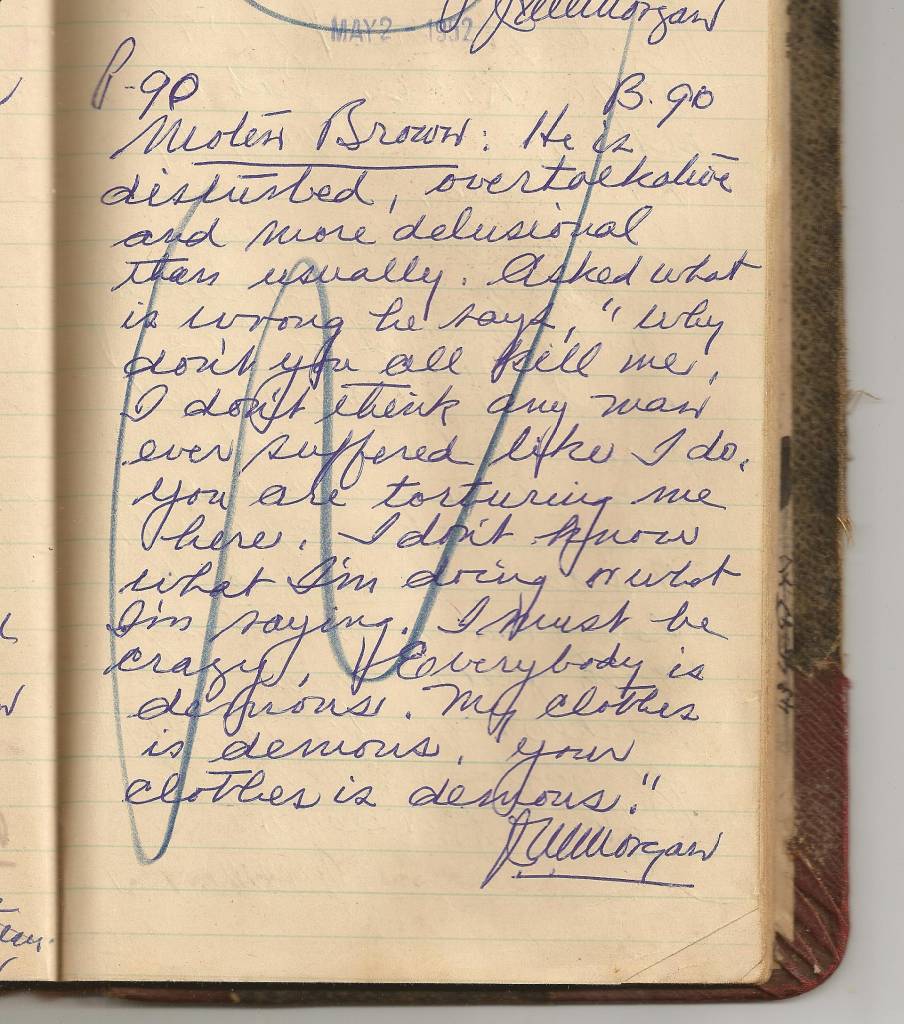 J W Morgan
MAY 2 - 1952
P-90 B. 90
Brown: He is
disturbed, overtalkative
and more delusional
than usually. Asked what
is wrong he says, "Why
don't you all kill me,
I don't think any man
ever suffered like I do.
You are torturing me
here. I don't know
what I'm doing or what
I'm saying. I must be
crazy, Everybody is
demons. My clothes
is demons, your
clothes is demons."
Morgan